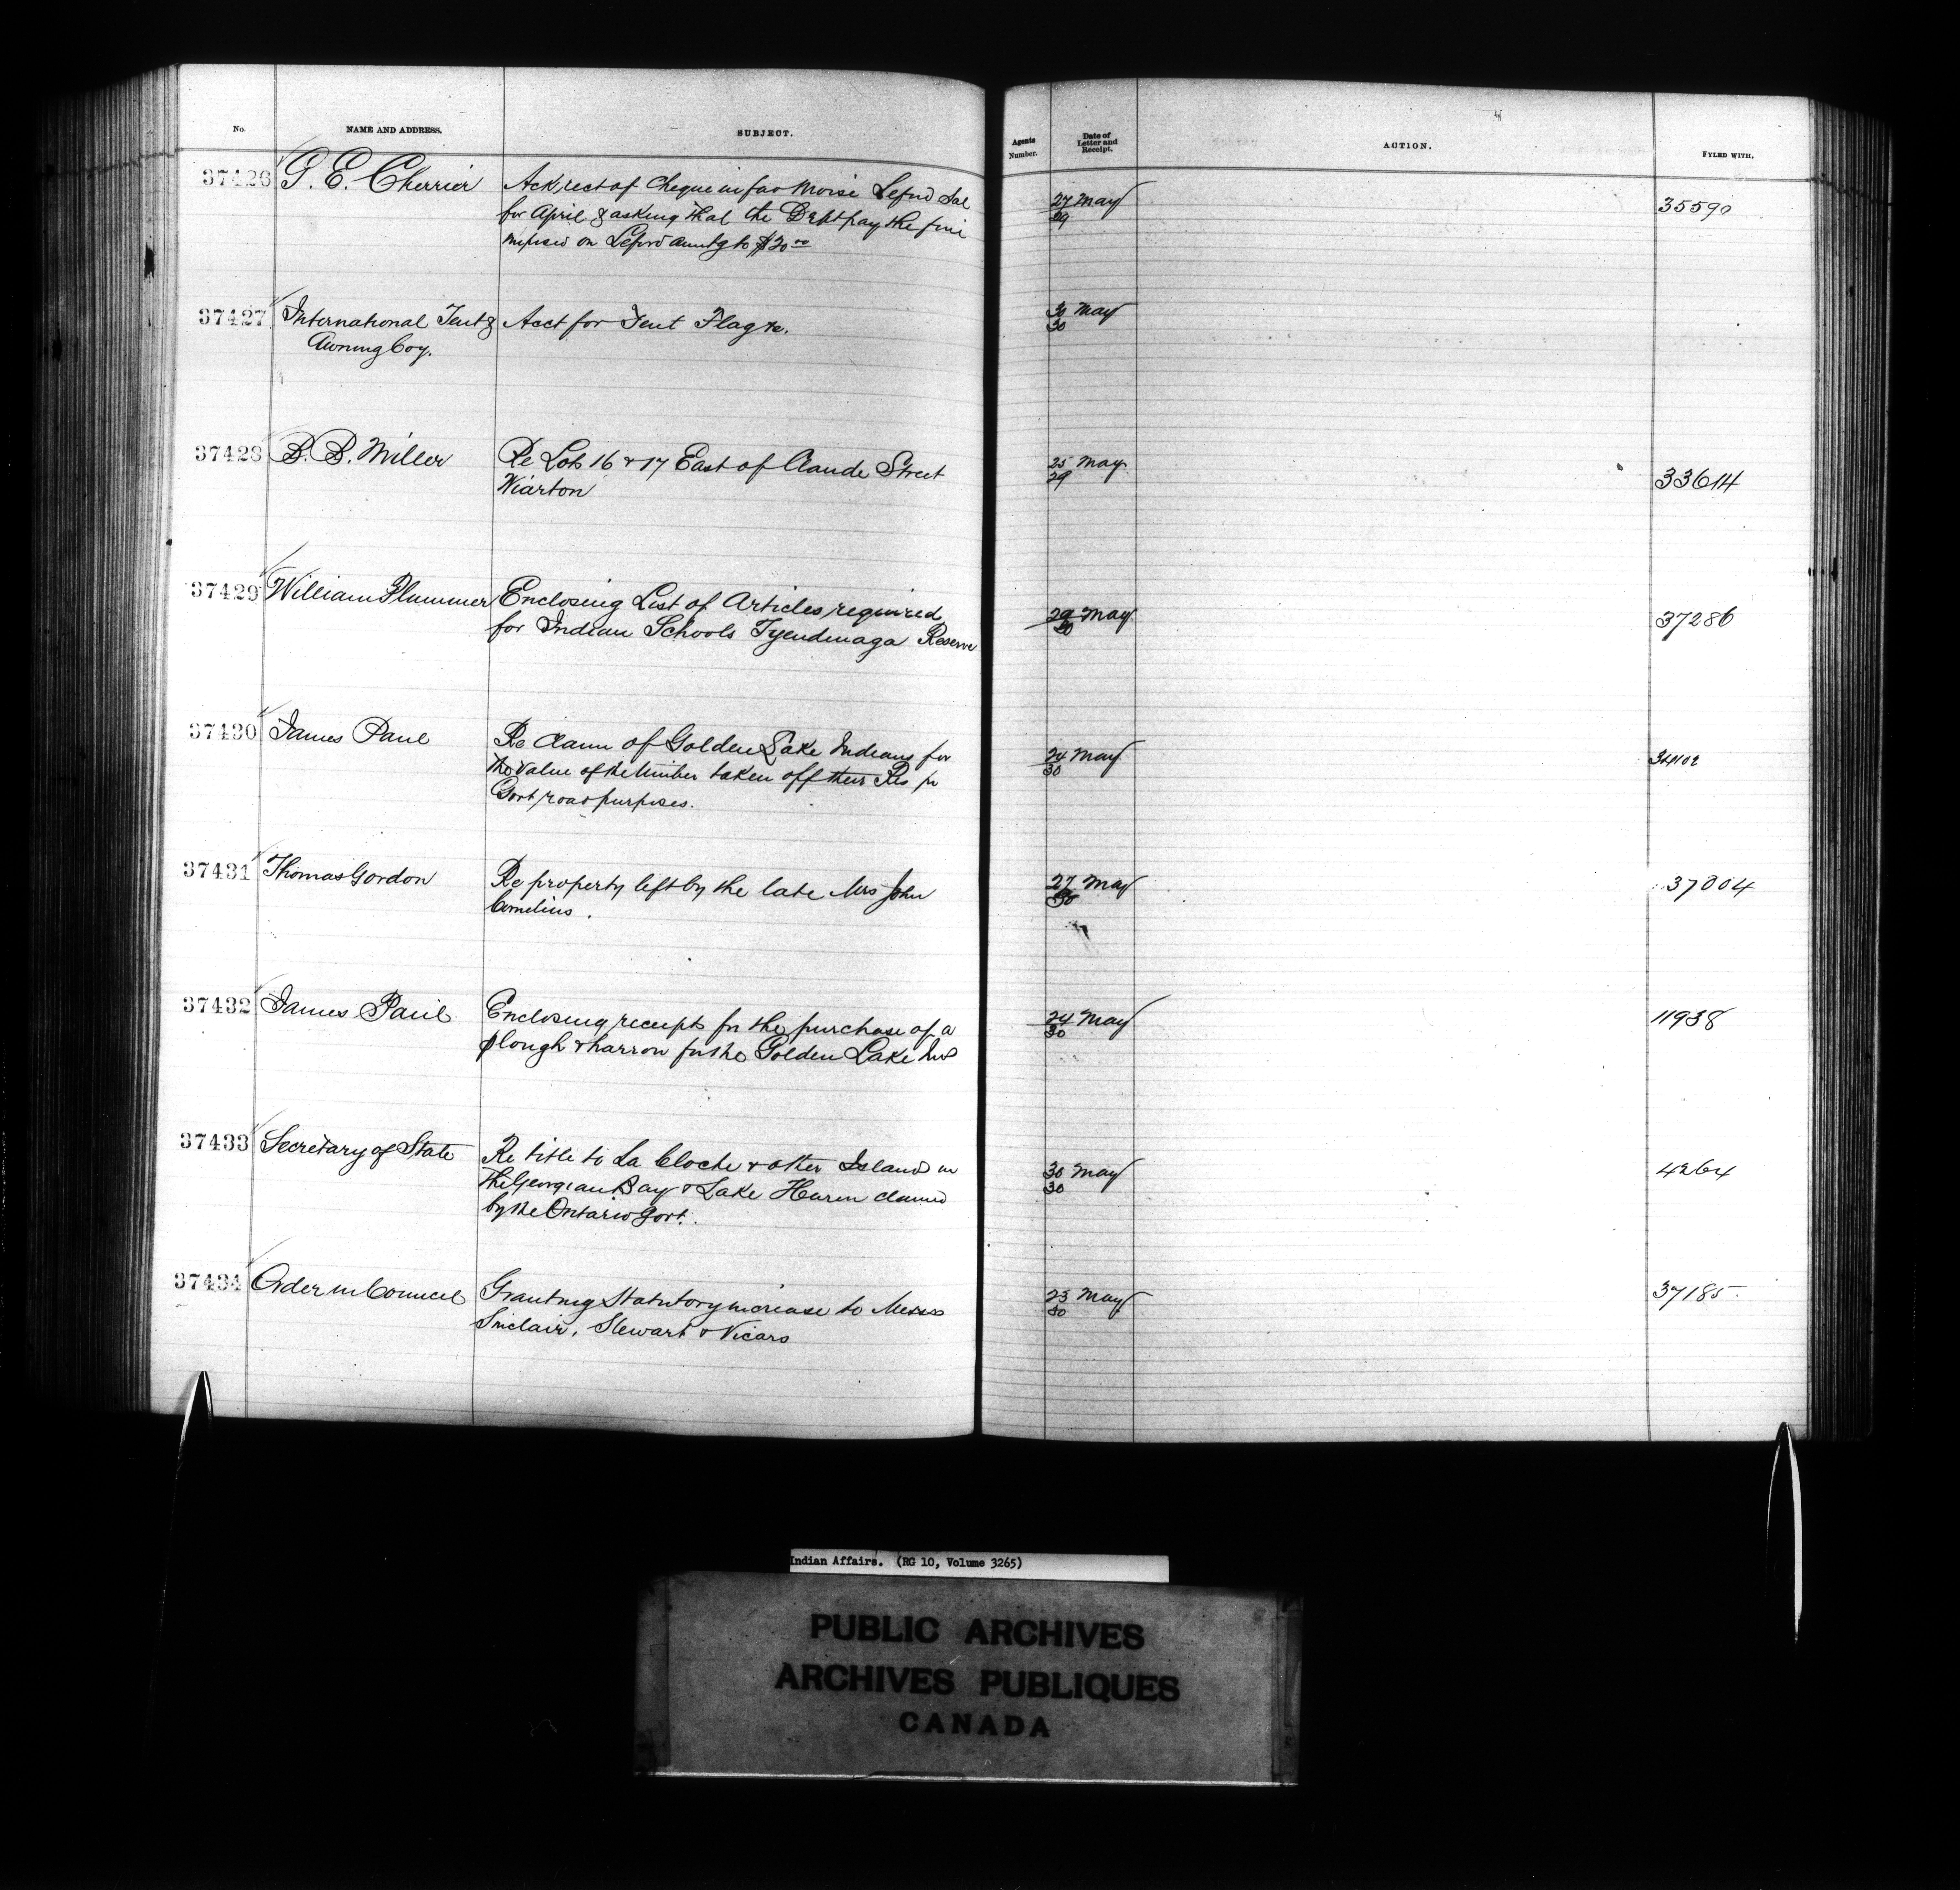 No. NAME AND ADDRESS. SUBJECT. Agents Number. Date of Letter and Receipt. ACTION. FYLED WITH.
37426 G. E. Cherrier Ack rect of cheque in fav Moise Leford Sal 27 May 35590
for April & asking that the Dept pay the fine 29
imposed on Leford amtg to $20.00
37427 International Tent & Acct for Tent Flag &c. 30 May
Awning Coy. 30
37428 B. B. Miller Re Lots 16 & 17 East of Claude Street 25 May 33614
Wiarton 29
37429 William Plummer Enclosing List of Articles required 29 May 37286
for Indian Schools Tyendinaga Reserve 30
37430 James Paul Re claim of Golden Lake Indians for 24 May 34102
the value of the timber taken off their Res for 30
Govt road purposes.
37431 Thomas Gordon Re property left by the late Mrs John 27 May 37004
Cornelius. 30
37432 James Paul Enclosing receipts for the purchase of a 24 May 11938
plough & harrow for the Golden Lake Inds 30
37433 Secretary of State Re title to La Cloche & other Islands in 30 May 4264
the Georgian Bay & Lake Huron claimed 30
by the Ontario Govt.
37434 Order in Council Granting Statutory increase to Messrs 23 May 37185
Sinclair, Stewart & Vicars 30
Indian Affairs. (RG 10, Volume 3265)
PUBLIC ARCHIVES
ARCHIVES PUBLIQUES
CANADA